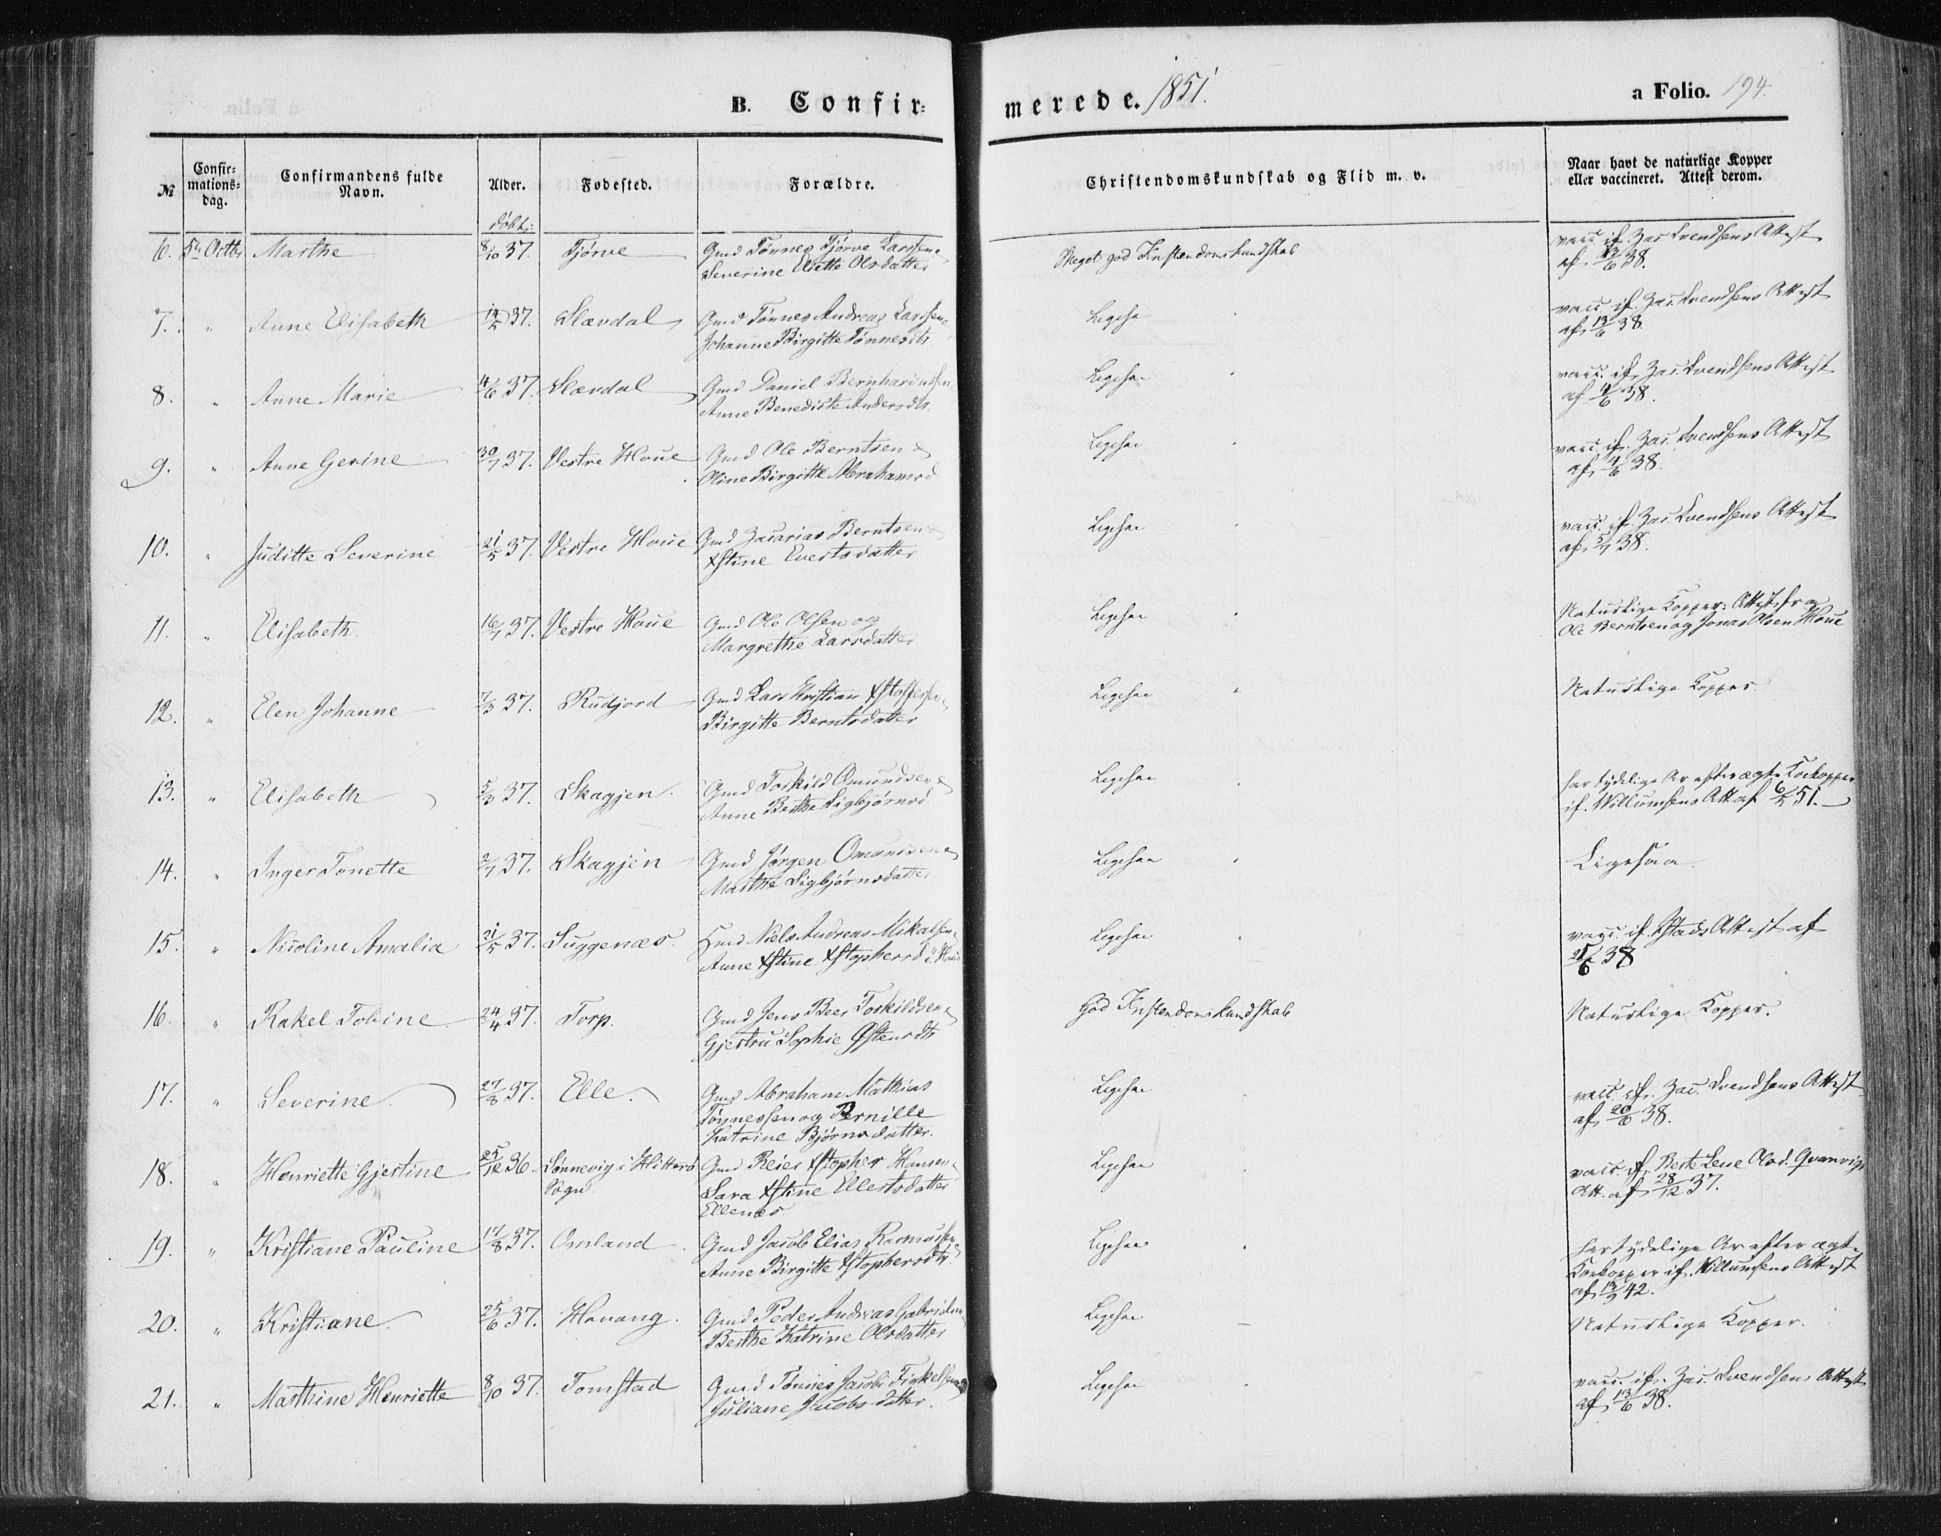 B. Confir=
merede. 1851.
a Folio. 194.
№
Confir=
mations=
dag.
Confirmandens fulde
Navn.
Alder.
Fødested.
Forældre.
Christendomskundskab og Flid m. v.
Naar havt de naturlige Kopper
eller vaccineret. Attest derom.
døbt:
6. 5te Octbr Marthe 8/10 37. Tjørve Gmd Tønnes Tjørve Larssen &
Severine Elette Olsdatter
Meget god Kristendomskundskab
vacc. if. Zac. Svendsens Attest
af 13/6 38.
7. " Anne Elisabeth 14/5 37. Slævdal Gmd Tønnes Andreas Larssen &
Johanne Birgitte Tønnesdtr
Ligesaa
vacc. if. Zac. Svendsens Attest
af 13/6 38.
8. " Anne Marie 14/6 37. Slævdal Gmd Daniel Bernhardussen
Anne Benedicte Andersdtr
Ligesaa
vacc. if. Zac. Svendsens Attest
af 4/6 38.
9. " Anne Gerine 30/7 37. Vestre Houe Gmd Ole Berntsen &
Oline Birgitte Abrahamsd
Ligesaa
vacc. if. Zac. Svendsens Attest
af 4/6 38.
10. " Juditte Severine 21/5 37. Vestre Houe Gmd Zacarias Berntsen &
Xstine Evertsdatter
Ligesaa
vacc. if. Zac. Svendsens Attest
af 5/7 38.
11. " Elisabeth 16/7 37. Vestre Houe Gmd Ole Olsen og
Margrethe Larsdatter
Ligesaa
Naturlige Kopper. Attest fra
Ole Berntsen og Jonas Olsen Houe
12. " Elen Johanne 7/3 37. Rudjord Gmd Lars Kristian Xstoffersen &
Birgitte Berntsdatter
Ligesaa
Naturlige Kopper.
13. " Elisabeth 5/3 37. Skagjen. Gmd Torkild Omundsen &
Anne Berthe Sigbjørnsd
Ligesaa
har tydelige Ar efter ægte Kokopper
if. Willumsens Att af 6/5 51.
14. " Inger Tonette 2/7 37. Skagjen Gmd Jørgen Omundsen &
Marthe Sigbjørnsdatter
Ligesaa
Ligesaa.
15. " Nicoline Amalia 21/5 37. Luggenæs. Hmd Niels Andreas Mikalsen
Anne Xstine Xstophersd
Ligesaa
vacc. if. Attest af
25/6 38
16. " Rakel Tobine 24/4 37. Torp. Gmd Jens Beer Torkildsen &
Gjertru Sophie Østensdtr
God Kristendomskundskab
Naturlige Kopper.
17. " Severine. 27/8 37. Elle. Gmd Abraham Mathias
Tønnessen og Pernille
Katrine Bjørnsdatter.
Ligesaa
vacc. if. Zac. Svendsens Attest
af 20/6 38.
18. " Henriette Gjertine 25/12 36. Sønnevig i Hitterø
Sogn. Gmd Reier Xstopher Hansen
Sara Xstine Ellertsdatter
Ellenæs
Ligesaa
vacc. if. Berte Lene Olsd. Qvanvigs
Att. af 28/12 37.
19. " Kristiane Pauline 17/8 37. Omland. Gmd Jacob Elias Rasmussen &
Anne Birgitte Xstophersdtr
Ligesaa
har tydelige Ar efter ægte
Kokopper if. Willumsens Attest
af 13/9 42.
20. " Kristiane. 25/6 37. Hanang. Gmd Peder Andreas Gabrielsen
Berthe Katrine Olsdatter
Ligesaa
Naturlige Kopper.
21. " Marthine Henriette 8/10 37. Tomstad Gmd Tønnes Jacob Tjerkelsen og
Juliane Jacobsdatter.
Ligesaa
vacc. if. Zac. Svendsens Attest
af 13/6 38.